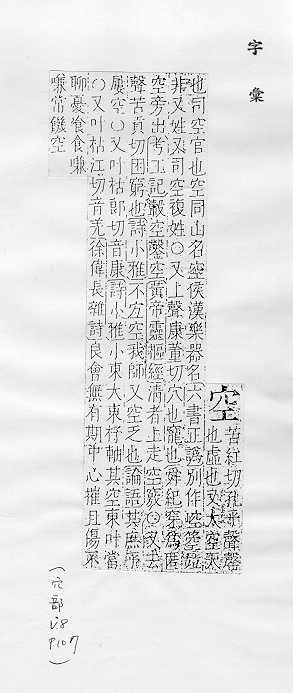 字彙
空
苦紅切孔平聲罄
也虛也又太空天
也司空官也空同山名空侯漢樂器名六書正譌別作
非又姓又司空復姓○又上聲康董切穴也竉也舜紀穿爲匿
空旁出考工記轂空鑿空黃帝靈樞經清者上走空竅○又去
聲苦貢切困窮也詩小雅不宜空我師又空乏也論語其庶乎
屢空○又叶枯郎切音康詩小雅小東大東杼軸其空東叶當
○又叶枯江切音羌徐偉長雜詩良會無有期中心摧且傷不
聊憂飧食慊
慊常饑空
(穴部
P.107)